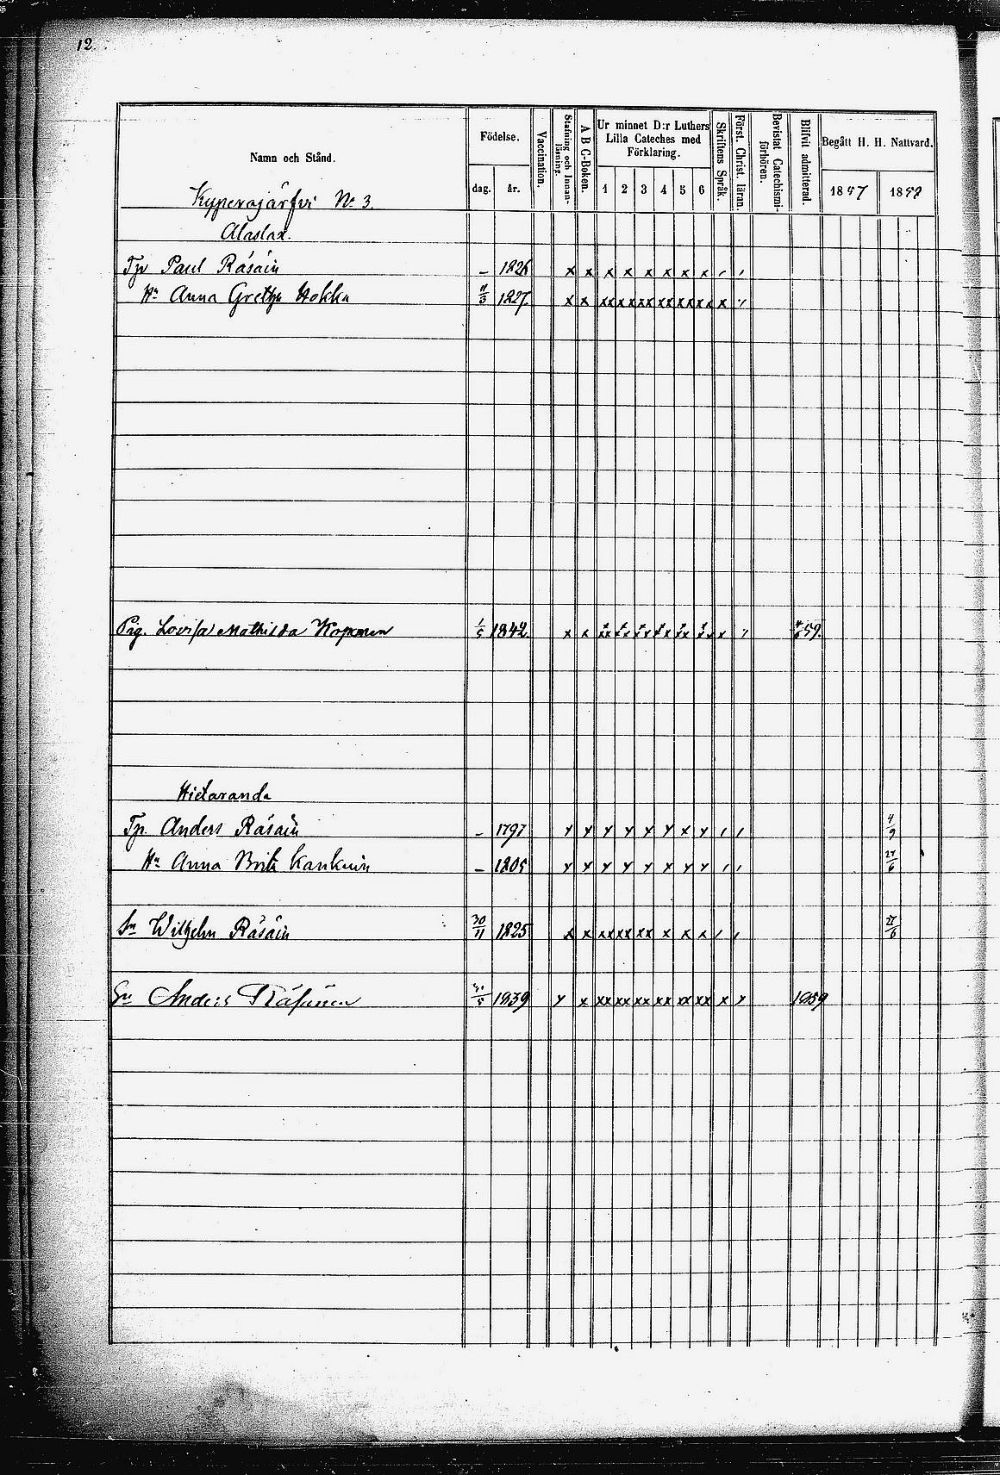 12.
Namn och Stånd. Födelse. dag. år. Vaccination. Stafning och Innanläsning. A B C-Boken. Ur minnet D:r Luthers Lilla Cateches med Förklaring. 1 2 3 4 5 6 Skriftens Språk. Först. Christ. läran. Bevistat Catechismiförhören. Blifvit admitterad. Begått H. H. Nattvard. 1857 1858
Kyperäjärfvi No 3.
Alaslax.
Tp Paul Räsäin – 1826 x x x x x x x x
Hu Anna Greta Hokka 1827. x x xx xx xx xx xx xx x
Pig. Lovisa Mathilda Koponen 1/5 1842 x x xx xx xx xx xx xx x 59.
Hietaranda
Tp. Anders Räsäin – 1797 x x x x x x x x 4/9
Hu Anna Brita Kankuin – 1805 x x x x x x x x 24/6
Sn Wilhelm Räsäin 30/11 1825 x x xx xx xx x x x
Anders Räsänen 1839 x x xx xx xx xx xx xx x x 1859